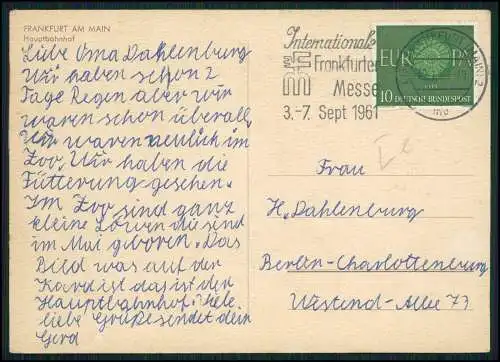 FRANKFURT AM MAIN
Hauptbahnhof
Liebe Oma Dahlenburg
Wir haben schon 2
Tage Regen aber wir
waren schon überall
Wir waren neulich im
Zoo, Wir haben die
Fütterung gesehen.
Im Zoo sind ganz
kleine Löwen die sind
im Mai geboren. Das
Bild was auf der
Kard ist das ist der
Hauptbahnhof. Viele
liebe Grüße sendet dein
Gerd
Internationale
Frankfurter
Messe
3.-7. Sept 1961
EUROPA
10 DEUTSCHE BUNDESPOST
Frau
H. Dahlenburg
Berlin-Charlottenburg
Westend-Allee 73